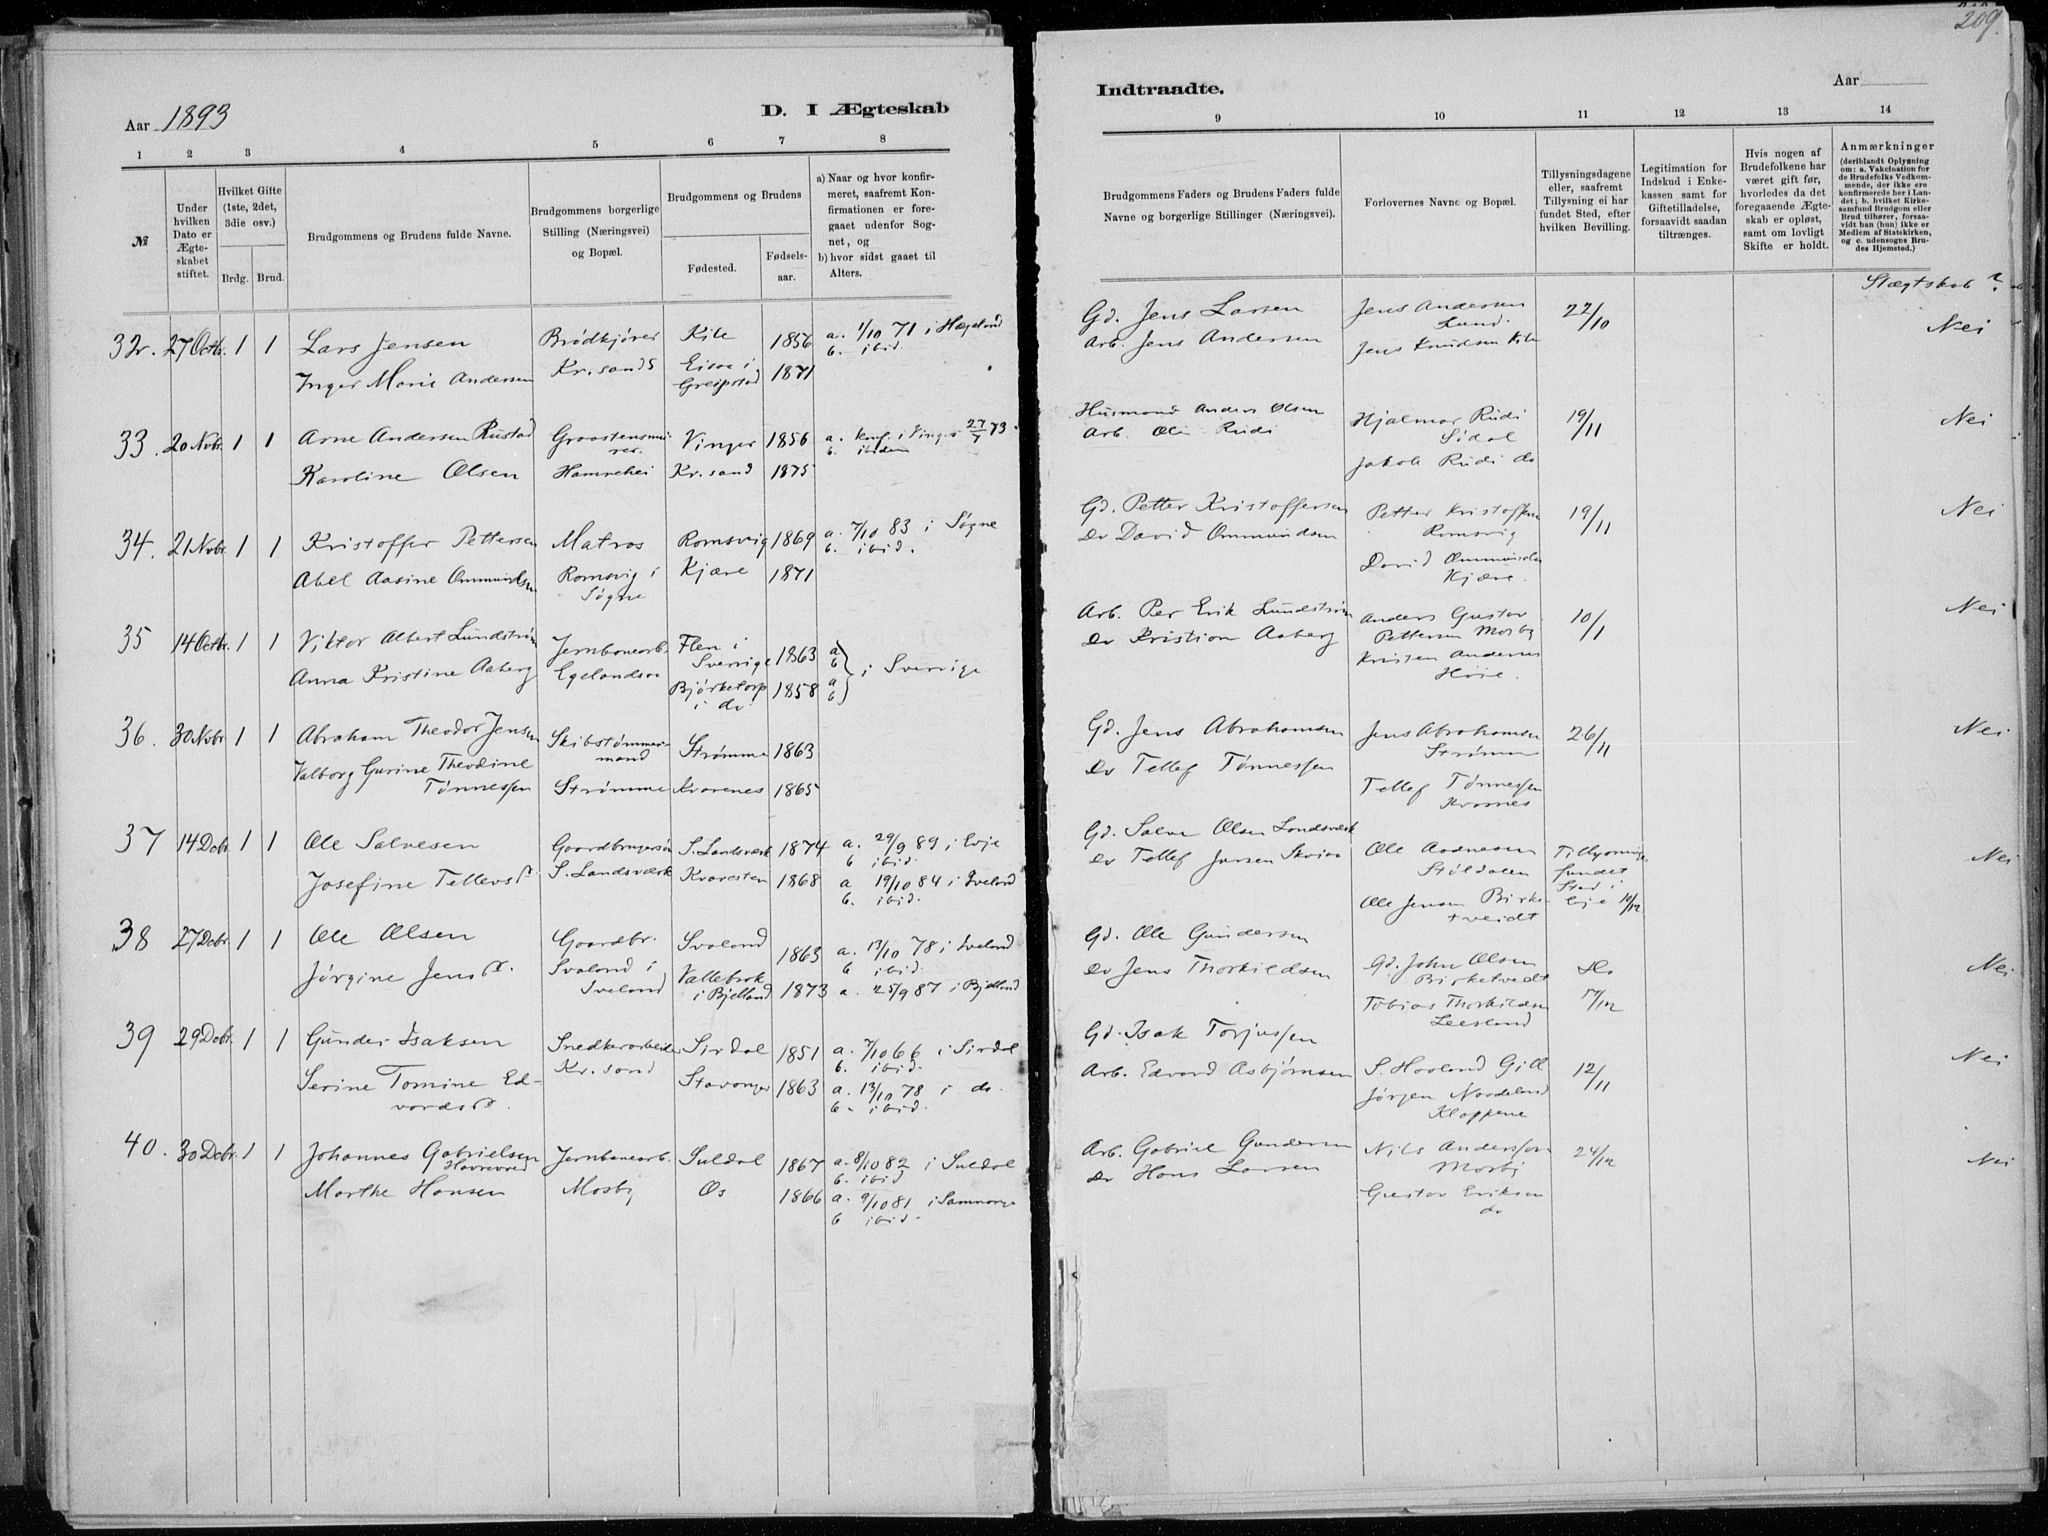 209.
Aar 1893
D. I Ægteskab
Indtraadte.
Aar
1 2 3 4 5 6 7 8
9 10 11 12 13 14
№
Under hvilken Dato er Ægteskabet stiftet.
Hvilket Gifte (1ste, 2det, 3die osv.)
Brdg. Brud.
Brudgommens og Brudens fulde Navne.
Brudgommens borgerlige Stilling (Næringsvei) og Bopæl.
Brudgommens og Brudens
Fødested. Fødselsaar.
a) Naar og hvor konfirmeret, saafremt Konfirmationen er foregaaet udenfor Sognet, og
b) hvor sidst gaaet til Alters.
Brudgommens Faders og Brudens Faders fulde
Navne og borgerlige Stillinger (Næringsvei).
Forlovernes Navne og Bopæl.
Tillysningsdagene eller, saafremt Tillysning ei har fundet Sted, efter hvilken Bevilling.
Legitimation for Indskud i Enkekassen samt for Giftetilladelse, forsaavidt saadan tiltrænges.
Hvis nogen af Brudefolkene har været gift før, hvorledes da det foregaaende Ægteskab er opløst, samt om lovligt Skifte er holdt.
Anmærkninger
(deriblandt Oplysning om: a. Vakcination for de Brudefolks Vedkommende, der ikke ere konfirmerede her i Landet; b. hvilket Kirkesamfund Brudgom eller Brud tilhører, forsaavidt han (hun) ikke er Medlem af Statskirken, og c. udensogns Brudes Hjemsted.)
Slægtskab?
32. 27 Octbr. 1 1 Lars Jensen Brødkjører Kile 1856 a. 1/10 71 i Hægeland
b. ibid.
Inger Marie Andersen Kr.sands Eisaa i Greipstad 1871
Gd. Jens Larsen Jens Andersen Lund. 22/10 Nei
Arb. Jens Andersen Jens Knudsen Kile
33. 20 Nvbr. 1 1 Arne Andersen Rustad Graastensmurer Vinger 1856 a. konf. i Vinger 27/7 73
b. ibidem
Karoline Olsen Hamrehei Kr.sand 1875
Husmand Anders Olsen Hjalmar Rudi Sødal 19/11 Nei
Arb. Ole Rudi Jakob Rudi do
34. 21 Nvbr. 1 1 Kristoffer Pettersen Matros Romsvig 1869 a. 7/10 83 i Søgne
b. ibid.
Abel Aasine Ommundsen Romsvig i Søgne Kjære 1871
Gd. Petter Kristoffersen Petter Kristoffersen Romsvig 19/11 Nei
Do David Ommundsen David Ommundsen Kjære.
35 14 Octbr. 1 1 Viktor Albert Lundstrøm Jernbanearb. Flen i Sverrige 1863 a b
Anna Kristine Aaberg Egelandsaa Bjørketorp i do 1858 a b i Sverrige
Arb. Per Erik Lundstrøm Anders Gustav Pettersen Mosby 10/1 Nei
Do Kristian Aaberg Kristen Andersen Høie.
36. 30 Nvbr 1 1 Abraham Theodor Jensen Skibstømmermand Strømme 1863
Valborg Gurine Theodine Tønnessen Strømme Kvarenes 1865
Gd. Jens Abrahamsen Jens Abrahamsen Strømme 26/11 Nei
Do Tellef Tønnessen Tellef Tønnessen
37 14 Dcbr. 1 1 Ole Salvesen Gaardbrugersøn S. Landsværk 1874 a. 29/9 89 i Evje
b ibid.
Josefine Tellevsd. S. Landsværk Kvarsten 1868 a 19/10 84 i Iveland
b. ibid.
Gd. Salve Olsen Landsværk Ole Aadnesen Støldalen Tillysning fundet Sted i Evje 10/12. Nei
Do Tellef Jensen Ole Jensen Birketveidt
38 27 Dcbr. 1 1 Ole Olsen Gaardbr. Svaland 1863 a. 13/10 78 i Iveland
b ibid.
Jørgine Jensd. Svaland i Iveland Vallebrok i Bjelland 1873 a. 25/9 87 i Bjelland
Gd. Ole Gundersen Gd. John Olsen Birketvedt Do 17/12 Nei
Do Jens Thorkildsen Tobias Thorkildsen Leesland
39 29 Dcbr. 1 1 Gunder Isaksen Snedkerarbeider Sirdal 1851 a. 7/10 66 i Sirdal
b. ibid.
Serine Tomine Edvardsd. Kr.sand Stavanger 1863 a. 13/10 78 i do.
b. ibid.
Gd. Isak Torjussen S. Hovland Gill 12/11 Nei
Arb. Edvard Asbjørnsen Jørgen Nordeland Kloppene
40. 30 Dcbr. 1 1 Johannes Gabrielsen Havrevred Jernbanearb. Suldal 1867 a. 8/10 82 i Suldal
b. ibid
Marthe Hansen Mosby Os 1866 a. 9/10 81 i Samnanger
b ibid.
Arb. Gabriel Gundersen Nils Anderssøn Mosby 24/12 Nei
Do Hans Larsen Gustav Eriksen do